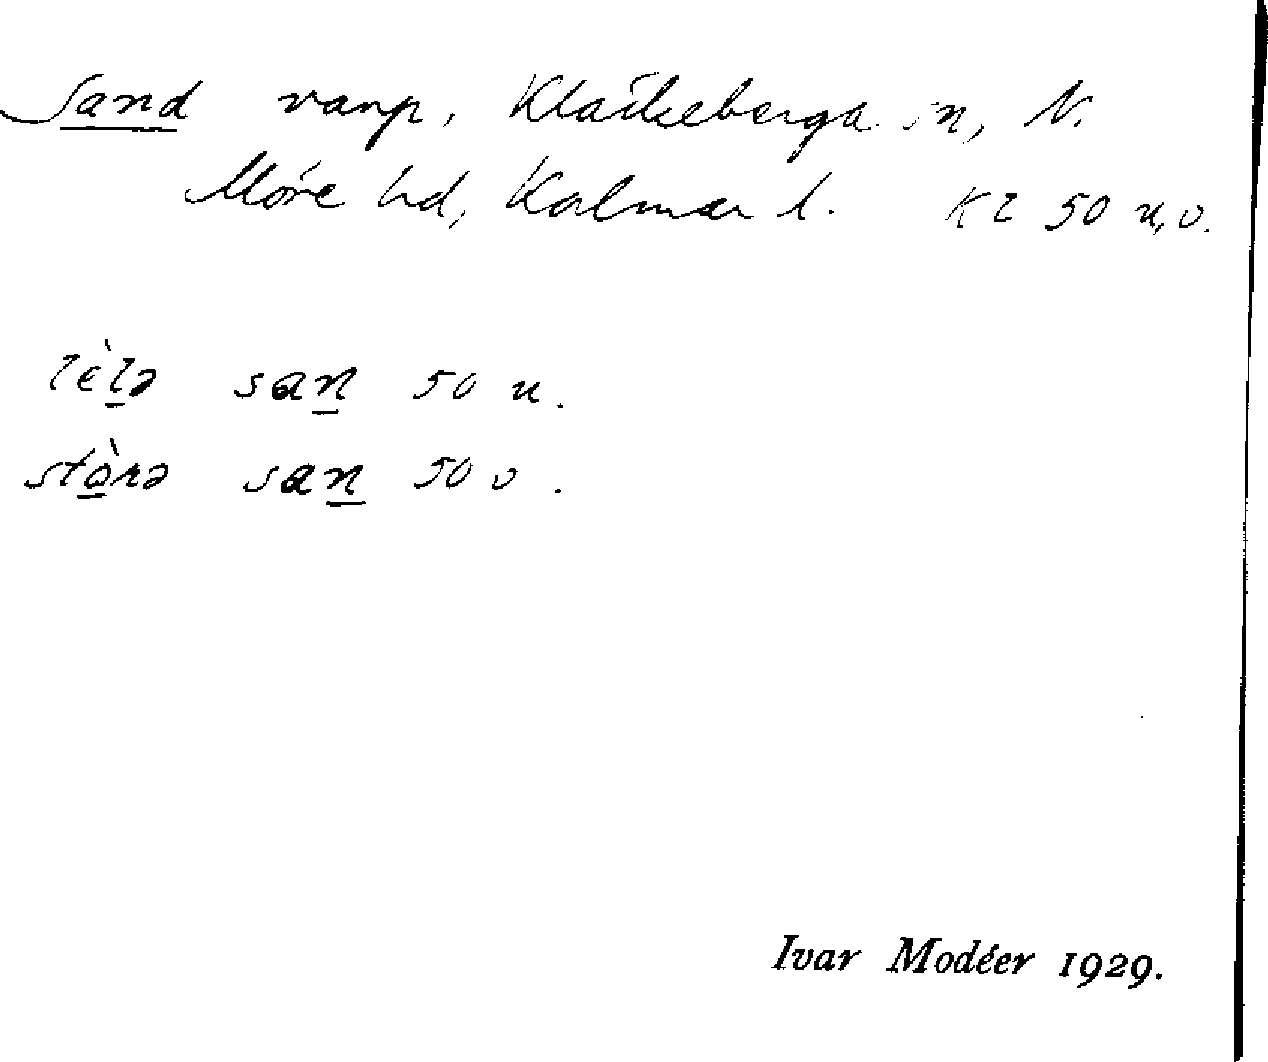 Sand vanp, Kläckeberga sn, N.
Möre hd, Kalmar l. Kl 50 u, v.
lèlə san 50 u.
stòrə san 50 v.
Ivar Modéer 1929.